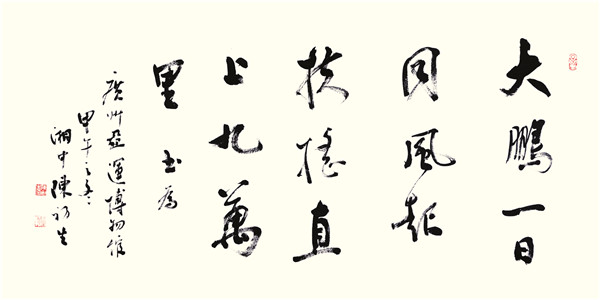 大鵬一日
同風起
扶搖直
上九萬
里 書為
廣州亞運博物館
甲午之冬
湘中陳初生